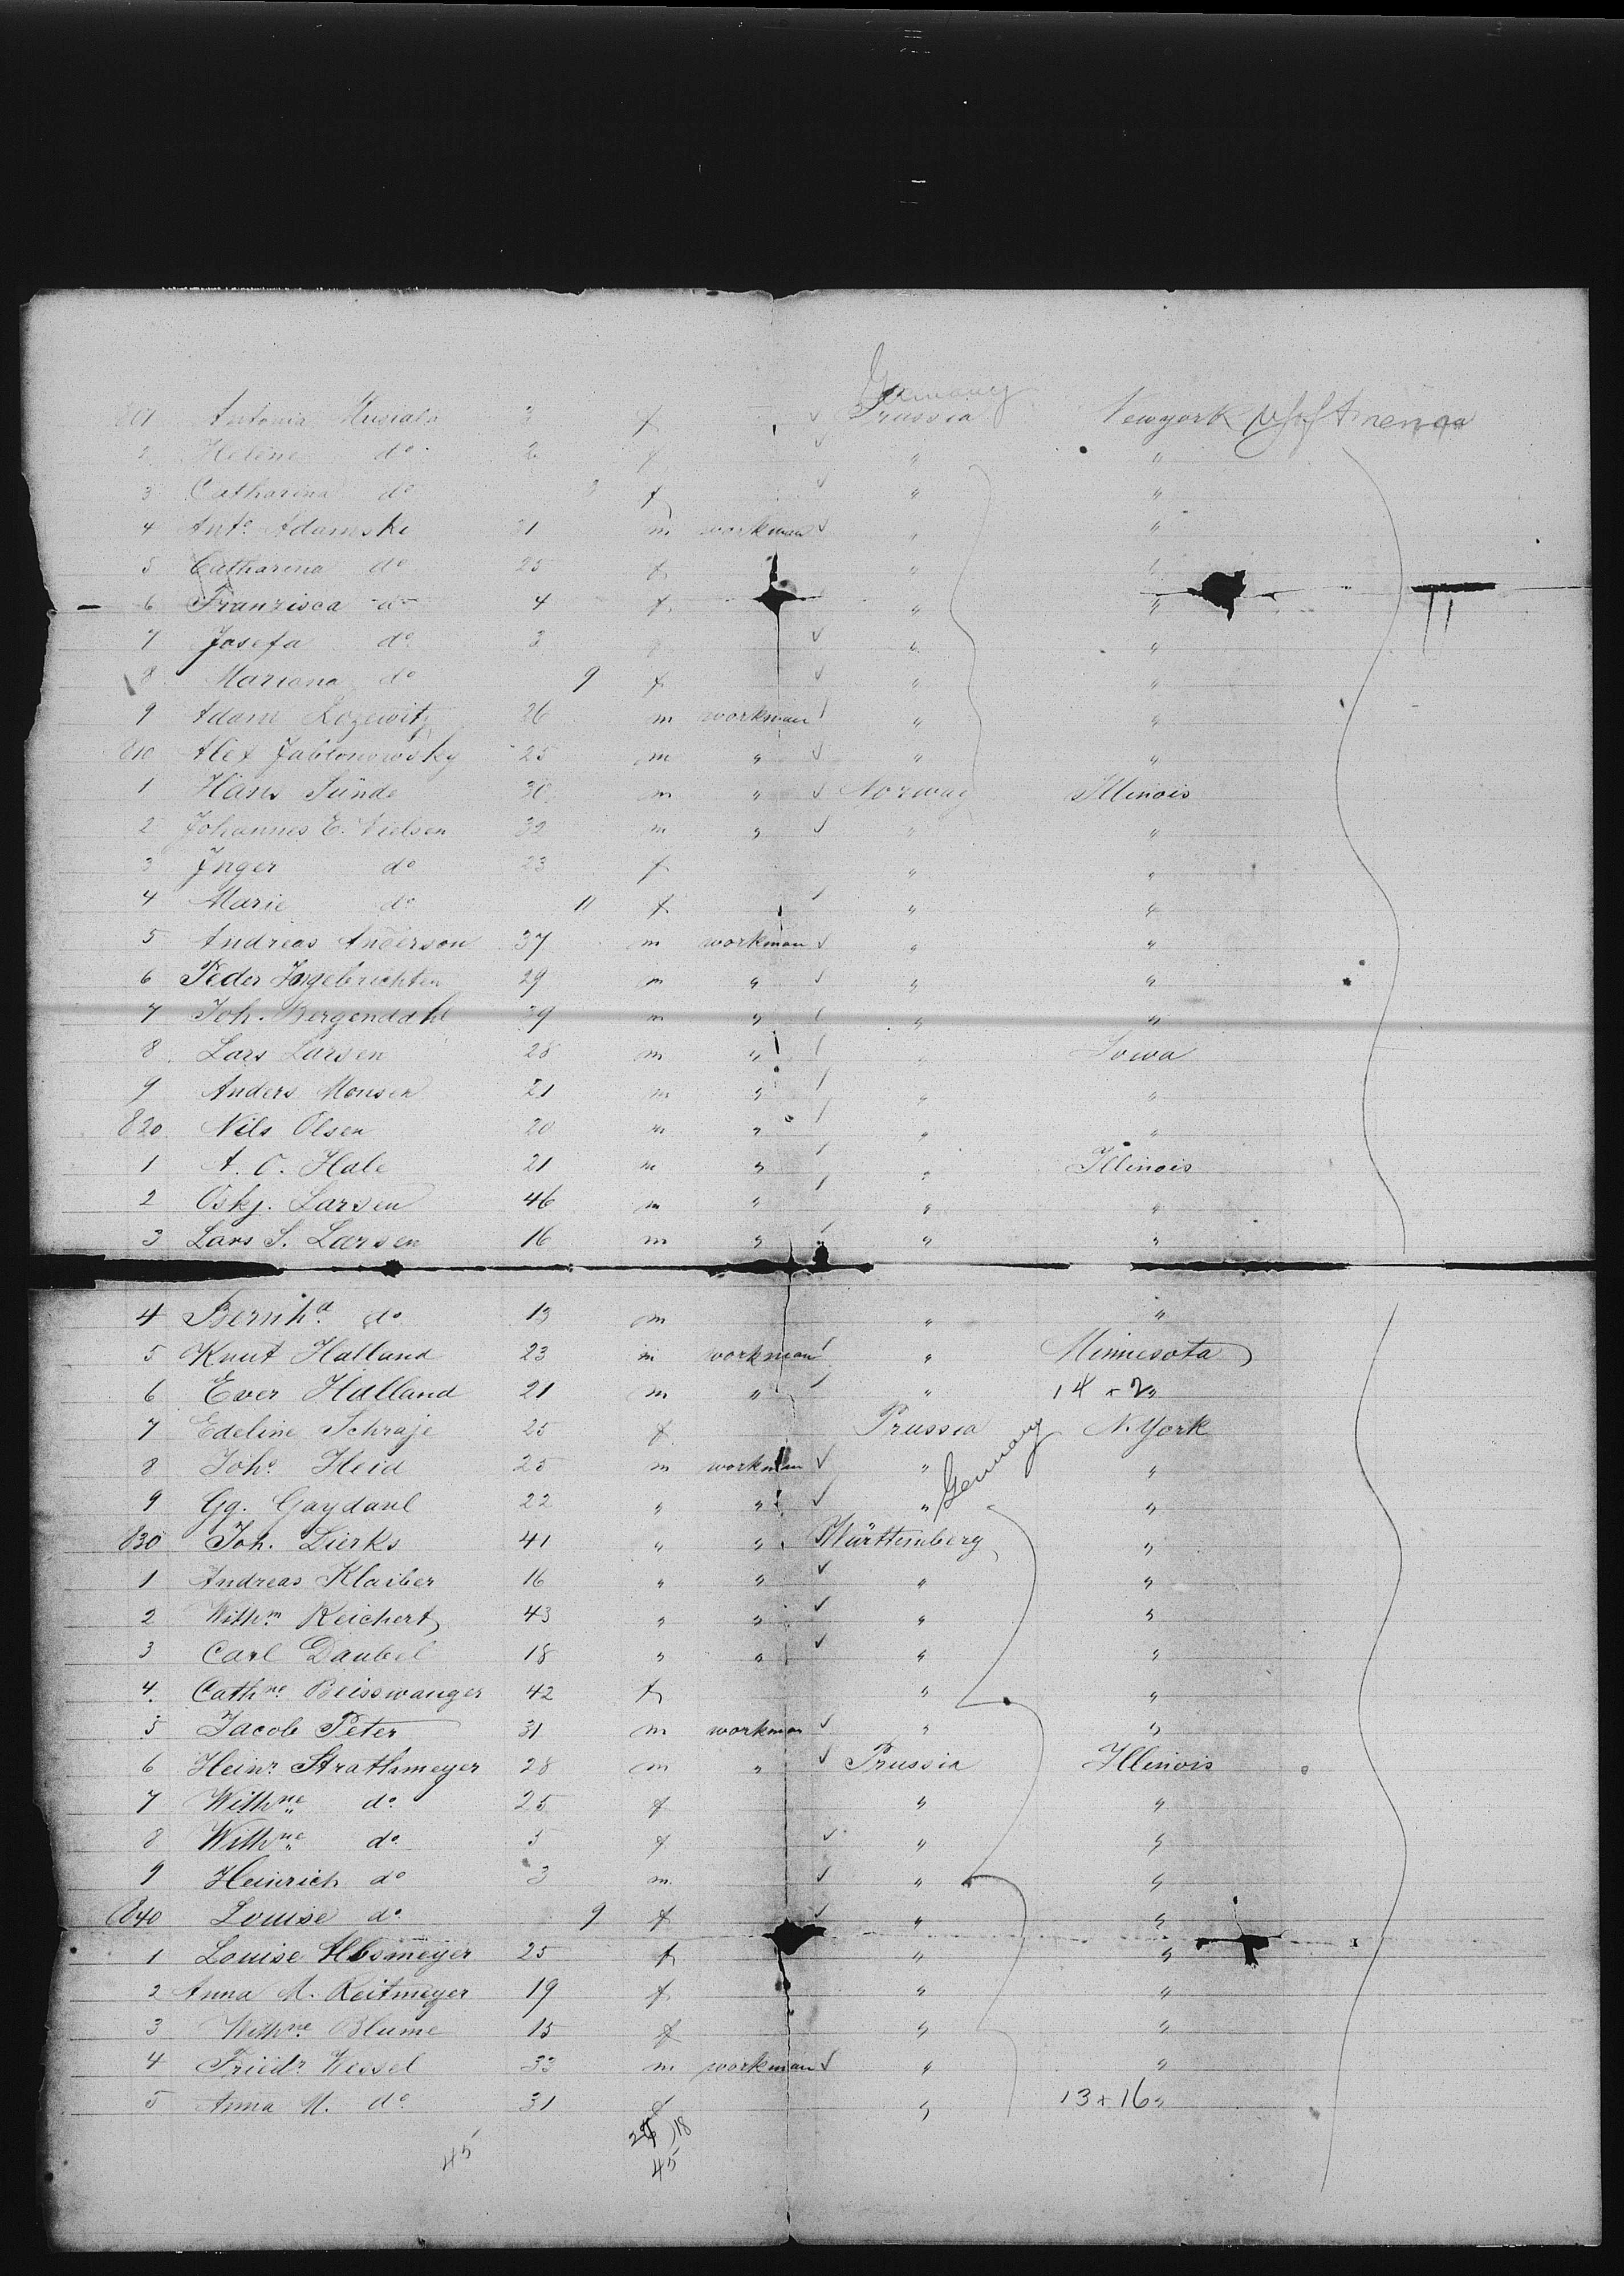 Germany
801 Antonia Musiala 3 f Prussia Newyork U S of America
2 Helene do 2 f " "
3 Catharina do f " "
4 Anto. Adamski 21 m workman " "
5 Catharina do 25 f " "
6 Franzisca do 4 f " "
7 Josefa do 3 " "
8 Mariana do 9 f " "
9 Adam Rozewitz 26 m workman " "
810 Alex Jablonowsky 25 m " " "
1 Hans Sünde 30 m " Norway Illinois
2 Johannes E. Nielsen 32 m " " "
3 Inger do 23 f " "
4 Marie do 11 f " "
5 Andreas Anderson 37 m workman " "
6 Peder Ingebrichten 29 m " " "
7 Joh. Bergenddhl 29 m " " "
8 Lars Larsen 28 m " " Iowa
9 Anders Monsen 21 m " " "
820 Nils Olsen 20 m " " "
1 A. O. Hale 21 m " " Illinois
2 Oskj. Larsen 46 m " " "
3 Lars S. Larsen 16 m " " "
4 Bernhd. do 13 m " "
5 Knut Halland 23 m workman " Minnesota
6 Ever Halland 21 m " " 14 x 2 "
7 Edeline Schraje 25 f Prussia N. York
8 Joho. Heid 25 m workman " "
Germany
9 Gg. Gaydaul 22 " " " "
830 Joh. Dierks 41 " " Württemberg "
1 Andreas Klaiber 16 " " " "
2 Wilhm Reichert 43 " " " "
3 Carl Daubel 18 " " " "
4. Cathne. Beisswanger 42 f " "
5 Jacob Peter 31 m workman " "
6 Heinr. Strathmeyer 28 m " Prussia Illinois
7 Wilhne do. 25 f " "
8 Wilhne do. 5 f " "
9 Heinrich do 3 m " "
840 Louise do. 9 f " "
1 Louise Absmeyer 25 f " "
2 Anna M. Reitmeyer 19 f " "
3 Wilhne. Blume 15 f " "
4 Friedr. Wessel 33 m workman " "
5 Anna M. do. 31 f " 13 x 16 "
18
45 45